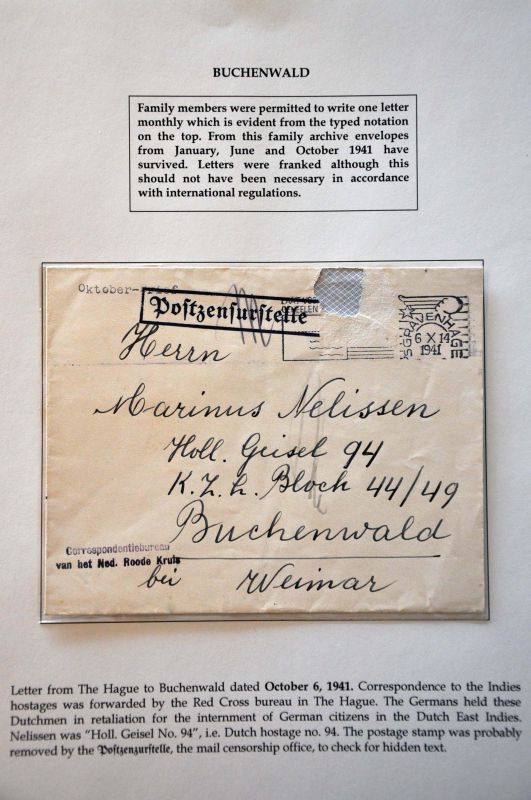 BUCHENWALD
Family members were permitted to write one letter
monthly which is evident from the typed notation
on the top. From this family archive envelopes
from January, June and October 1941 have
survived. Letters were franked although this
should not have been necessary in accordance
with international regulations.
Oktober-
Postzensurstelle
'S GRAVENHAGE
6 X 14
1941
Herrn
Marinus Nelissen
Holl. Geisel 94
K.Z.L. Block 44/49
Buchenwald
Correspondentiebureau
van het Ned. Roode Kruis
bei Weimar
Letter from The Hague to Buchenwald dated October 6, 1941. Correspondence to the Indies
hostages was forwarded by the Red Cross bureau in The Hague. The Germans held these
Dutchmen in retaliation for the internment of German citizens in the Dutch East Indies.
Nelissen was "Holl. Geisel No. 94", i.e. Dutch hostage no. 94. The postage stamp was probably
removed by the Postzenzurstelle, the mail censorship office, to check for hidden text.